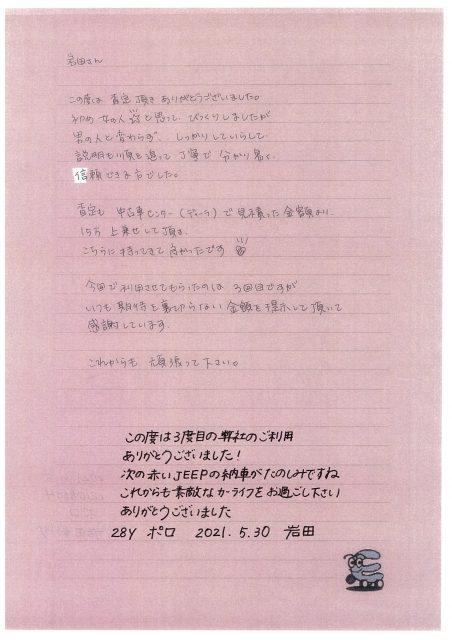 岩田さん
この度は 査定 頂き ありがとうございました。
初め 女の人 と思って びっくりしましたが
男の人と変わらず、しっかりしていらして
説明も順を追って 丁寧で 分かり易く
信頼できる方でした。
査定も 中古車センター (ディーラー) で 見積った 金額より
15万 上乗せして 頂き
こちらに 持ってきて 良かったです
今回で 利用させてもらったのは 3回目ですが
いつも 期待を裏切らない 金額を 提示して 頂いて
感謝しています。
これからも 頑張って下さい。
この度は3度目の弊社のご利用
ありがとうございました!
次の赤いJEEPの納車がたのしみですね
これからも素敵なカーライフをお過ごし下さい
ありがとうございました
28Y ポロ 2021.5.30 岩田